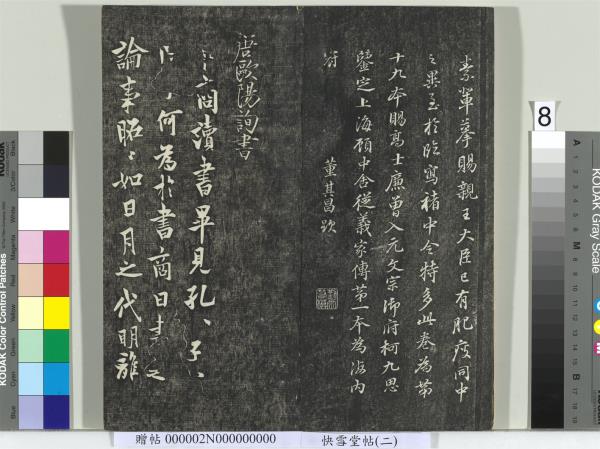 素輩摹賜親王大臣已有肥瘦同中
之異至於臨寫褚中令特多此卷為第
十九本賜高士廉曾入元文宗御府柯九思
鑒定上海顧中舍從義家傳第一本為海內
董其昌跋
唐歐陽詢書
商讀書畢見孔〻子〻
何為於書商曰書之
論事昭〻如日月之代明離
贈帖 000002N000000000 快雪堂帖(二)
8
KODAK Color Control Patches
Blue
Cyan
Green
Yellow
Red
Magenta
White
3/Color
Black
KODAK Gray Scale
A 1 2 3 4 5 6 M 8 9 10 11 12 13 14 15 B 17 18 19
C
Y
M